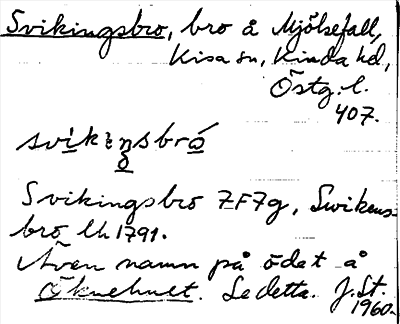 Svikingsbro, bro å Mjölsefall,
Kisa sn, Kinda hd,
Östg. l.
407.
svikiŋsbró
Svikingsbro 7F7g, Swikens-
bro lh 1791.
Även namn på ödet å
Öknehult. Se detta. J. St.
1960.